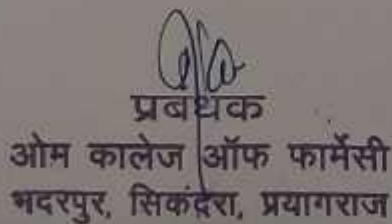 प्रबंधक
ओम कालेज ऑफ फार्मेसी
भदरपुर, सिकंदरा, प्रयागराज